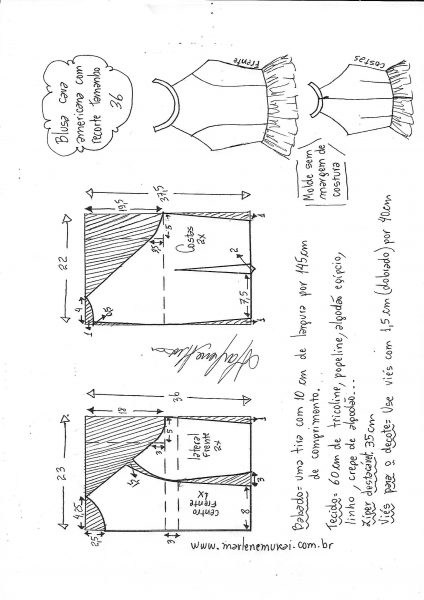 Blusa cava
americana com
recorte tamanho
36
Frente
Costas
Molde sem
margem de
costura
22
4
1
0,5
19,5
37,5
3,5
5
1
Costas
2x
2
7,5
1
23
4,25
2,5
18
36
3
5
1
lateral
frente
2x
centro
Frente
1x
3
8
3
Babado= uma tira com 10 cm de largura por 145cm
de comprimento.
Tecido= 60cm de tricoline, popeline, algodão egípcio,
linho, crepe de algodão...
Ziper destacavel 35cm
Viés para o decote= Use viés com 1,5cm (dobrado) por 90cm
www.marlenemukai.com.br